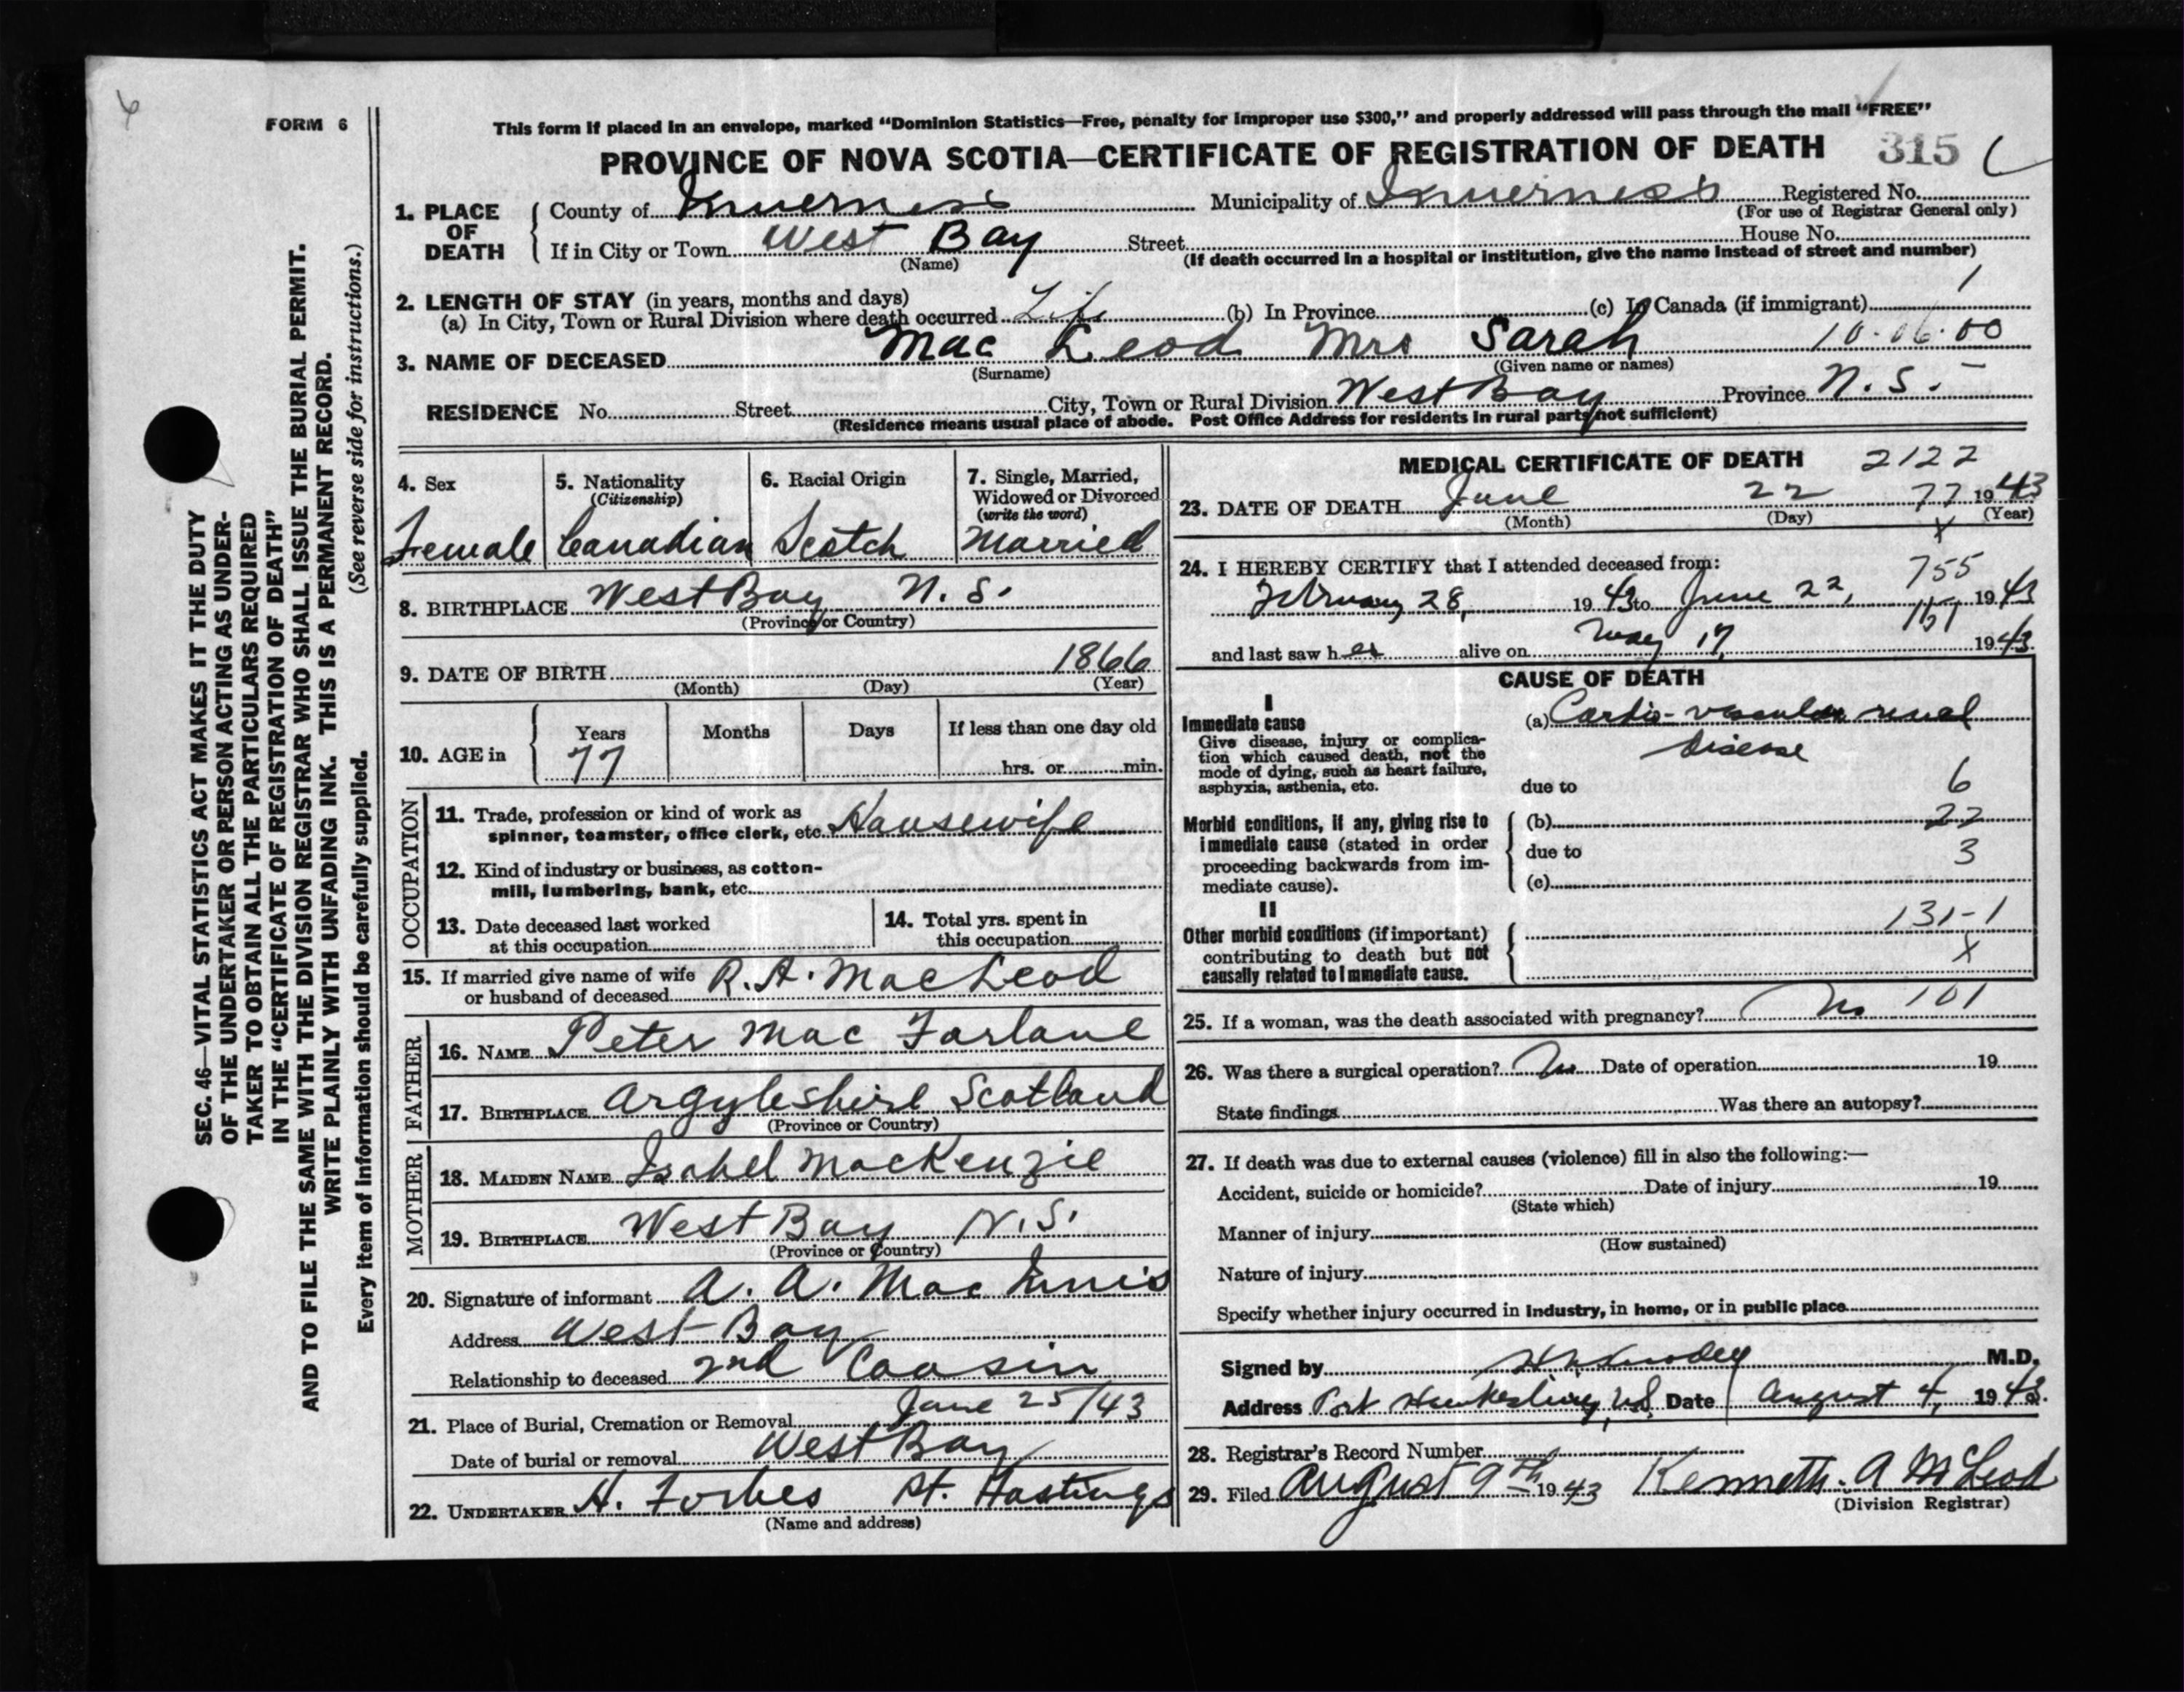 6
FORM 6
This form if placed in an envelope, marked “Dominion Statistics—Free, penalty for improper use $300,” and properly addressed will pass through the mail “FREE”
PROVINCE OF NOVA SCOTIA—CERTIFICATE OF REGISTRATION OF DEATH 315
1. PLACE OF DEATH { County of Inverness Municipality of Inverness Registered No.
(For use of Registrar General only)
If in City or Town West Bay Street House No.
(Name) (If death occurred in a hospital or institution, give the name instead of street and number)
2. LENGTH OF STAY (in years, months and days) 1
(a) In City, Town or Rural Division where death occurred Life (b) In Province (c) In Canada (if immigrant)
3. NAME OF DECEASED Mac Leod Mrs Sarah 10.06.00
(Surname) (Given name or names)
RESIDENCE No. Street City, Town or Rural Division West Bay Province N.S.
(Residence means usual place of abode. Post Office Address for residents in rural parts not sufficient)
4. Sex Female
5. Nationality (Citizenship) Canadian
6. Racial Origin Scotch
7. Single, Married, Widowed or Divorced (write the word) Married
8. BIRTHPLACE West Bay N.S.
(Province or Country)
9. DATE OF BIRTH 1866
(Month) (Day) (Year)
10. AGE in { Years 77 Months Days If less than one day old
hrs. or min.
OCCUPATION
11. Trade, profession or kind of work as
spinner, teamster, office clerk, etc. Housewife
12. Kind of industry or business, as cotton-
mill, lumbering, bank, etc.
13. Date deceased last worked
at this occupation
14. Total yrs. spent in
this occupation
15. If married give name of wife R.A. MacLeod
or husband of deceased
FATHER
16. NAME Peter Mac Farlane
17. BIRTHPLACE Argyleshire Scotland
(Province or Country)
MOTHER
18. MAIDEN NAME Isabel MacKenzie
19. BIRTHPLACE West Bay N.S.
(Province or Country)
20. Signature of informant A. A. Mac Innis
Address West Bay
Relationship to deceased 2nd Coasin
21. Place of Burial, Cremation or Removal June 25/43
Date of burial or removal West Bay
22. UNDERTAKER H. Forbes Pt. Hastings
(Name and address)
MEDICAL CERTIFICATE OF DEATH 2122
23. DATE OF DEATH June 22 77 1943
(Month) (Day) (Year)
X
24. I HEREBY CERTIFY that I attended deceased from: 755
February 28, 1943 to June 22, 1943
and last saw her alive on May 17, 1943
CAUSE OF DEATH
I
Immediate cause (a) Cardio-vascular renal
disease
Give disease, injury or complica-
tion which caused death, not the
mode of dying, such as heart failure,
asphyxia, asthenia, etc. due to 6
Morbid conditions, if any, giving rise to { (b) 22
immediate cause (stated in order due to 3
proceeding backwards from im-
mediate cause). (c)
II 131-1
Other morbid conditions (if important) {
contributing to death but not X
causally related to immediate cause.
25. If a woman, was the death associated with pregnancy? No 101
26. Was there a surgical operation? No Date of operation 19
State findings Was there an autopsy?
27. If death was due to external causes (violence) fill in also the following:—
Accident, suicide or homicide? Date of injury 19
(State which)
Manner of injury
(How sustained)
Nature of injury
Specify whether injury occurred in industry, in home, or in public place
Signed by M.D.
Address Port Hawkesbury, N.S. Date August 4, 1943.
28. Registrar's Record Number
29. Filed August 9th 1943 Kenneth. A McLeod
(Division Registrar)
SEC. 46—VITAL STATISTICS ACT MAKES IT THE DUTY
OF THE UNDERTAKER OR PERSON ACTING AS UNDER-
TAKER TO OBTAIN ALL THE PARTICULARS REQUIRED
IN THE “CERTIFICATE OF REGISTRATION OF DEATH”
AND TO FILE THE SAME WITH THE DIVISION REGISTRAR WHO SHALL ISSUE THE BURIAL PERMIT.
WRITE PLAINLY WITH UNFADING INK. THIS IS A PERMANENT RECORD.
Every item of information should be carefully supplied. (See reverse side for instructions.)